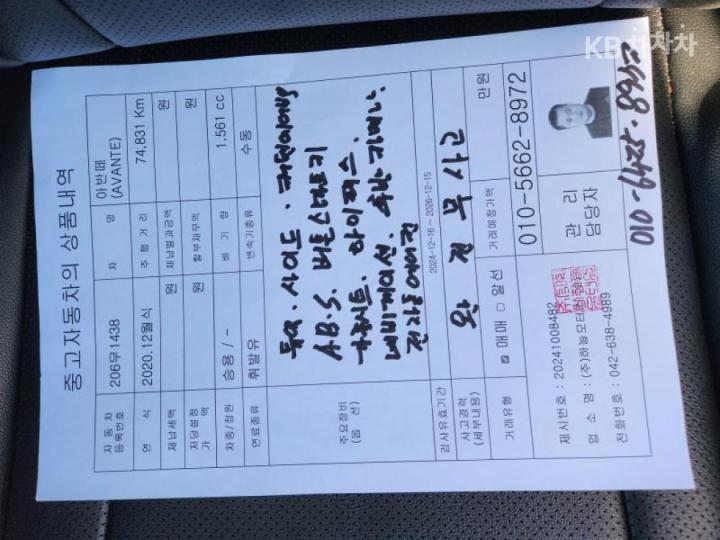 KB차차차
중고자동차의 상품내역
자동차등록번호 206무1438 차명 아반떼(AVANTE)
연식 2020.12월식 주행거리 74,831 Km
체납세액 원 체납벌과금액 원
저당설정가액 원 할부채무액 원
차종/정원 승용 / - 배기량 1,561 cc
연료종류 휘발유 변속기종류 수동
주요장비(옵션)
듀얼. 사이드. 파워
A.B.S. 버튼스타트키
하이패스.
네비게이션. 후방카메라
전자동에어컨
검사유효기간 2024-12-16 ~ 2026-12-15
사고경력(세부내용) 완전무사고
거래유형 ☑ 매매 □ 알선 거래예정가액 만원
제시번호 : 20241008482
업소명 : (주)하늘모터
전화번호 : 042-638-4989
관리담당자
010-5662-8972